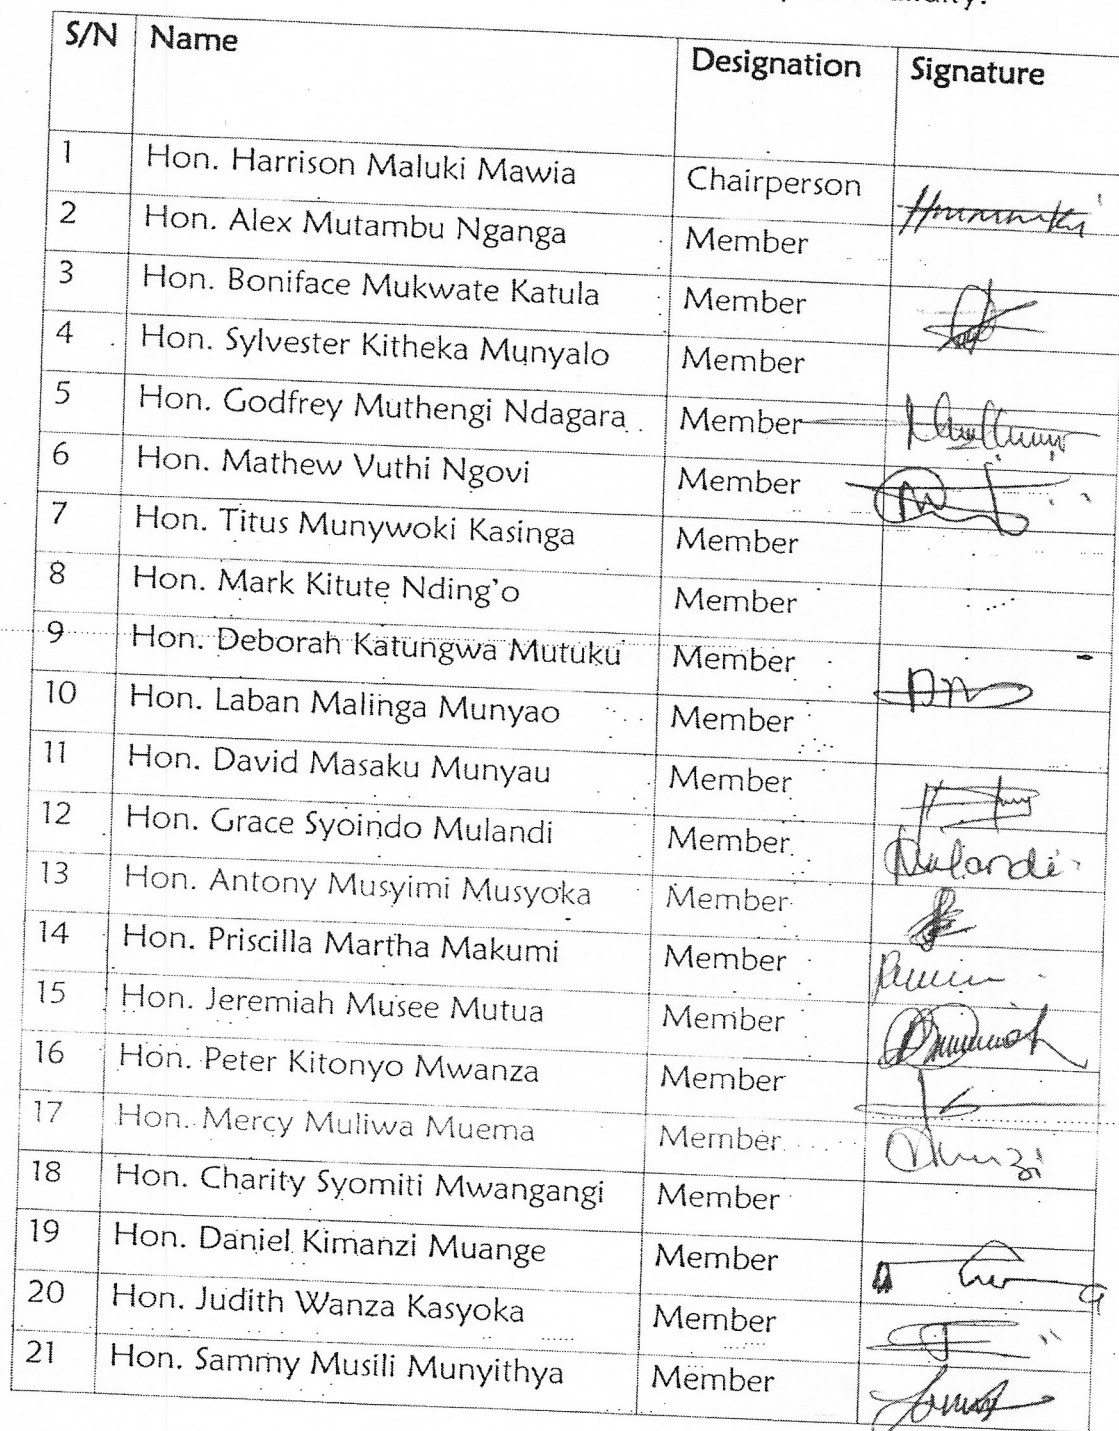 S/N Name Designation Signature
1 Hon. Harrison Maluki Mawia Chairperson
2 Hon. Alex Mutambu Nganga Member
3 Hon. Boniface Mukwate Katula Member
4 Hon. Sylvester Kitheka Munyalo Member
5 Hon. Godfrey Muthengi Ndagara Member
6 Hon. Mathew Vuthi Ngovi Member
7 Hon. Titus Munywoki Kasinga Member
8 Hon. Mark Kitute Nding'o Member
9 Hon. Deborah Katungwa Mutuku Member
10 Hon. Laban Malinga Munyao Member
11 Hon. David Masaku Munyau Member
12 Hon. Grace Syoindo Mulandi Member Mulandi
13 Hon. Antony Musyimi Musyoka Member
14 Hon. Priscilla Martha Makumi Member
15 Hon. Jeremiah Musee Mutua Member
16 Hon. Peter Kitonyo Mwanza Member
17 Hon. Mercy Muliwa Muema Member
18 Hon. Charity Syomiti Mwangangi Member
19 Hon. Daniel Kimanzi Muange Member
20 Hon. Judith Wanza Kasyoka Member
21 Hon. Sammy Musili Munyithya Member